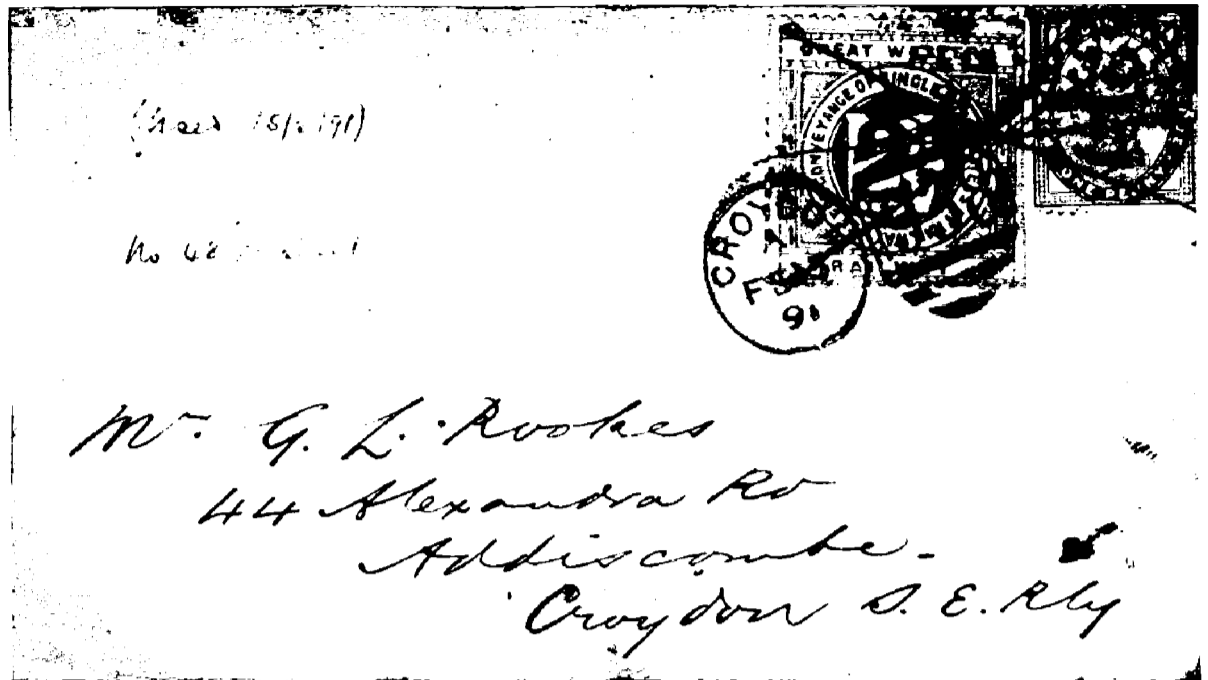 GREAT WESTERN
CONVEYANCE OF SINGLE
RAILWAY
ONE PENNY
CROYDON
A
FE
91
Mr. G. L. Rookes
44 Alexandra Rd
Addiscombe.
Croydon S. E. Rly